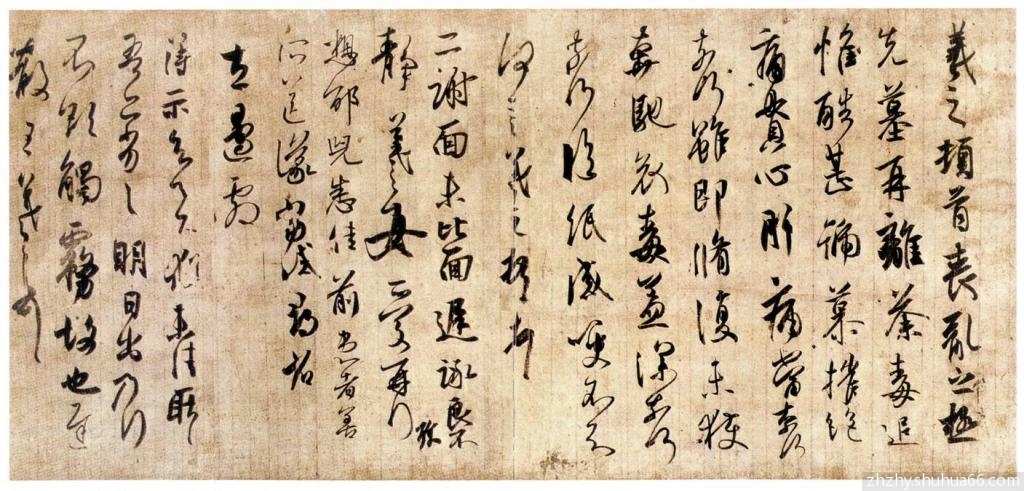 羲之頓首喪亂之極
先墓再離荼毒追
惟酷甚號慕摧絕
痛貫心肝痛當奈何
奈何雖即脩復未獲
奔馳哀毒益深奈何
奈何臨紙感哽不知
何言羲之頓首頓首
二謝面未比面遲詠良不
靜羲之女愛再拜
想邵兒悉佳前患者善
所送議當試尋省
左邊劇
得示知足下猶未佳耿耿
吾亦劣劣明日出乃行
不欲觸霧故也遲
散王羲之頓首
zhzhyshuhua66.com